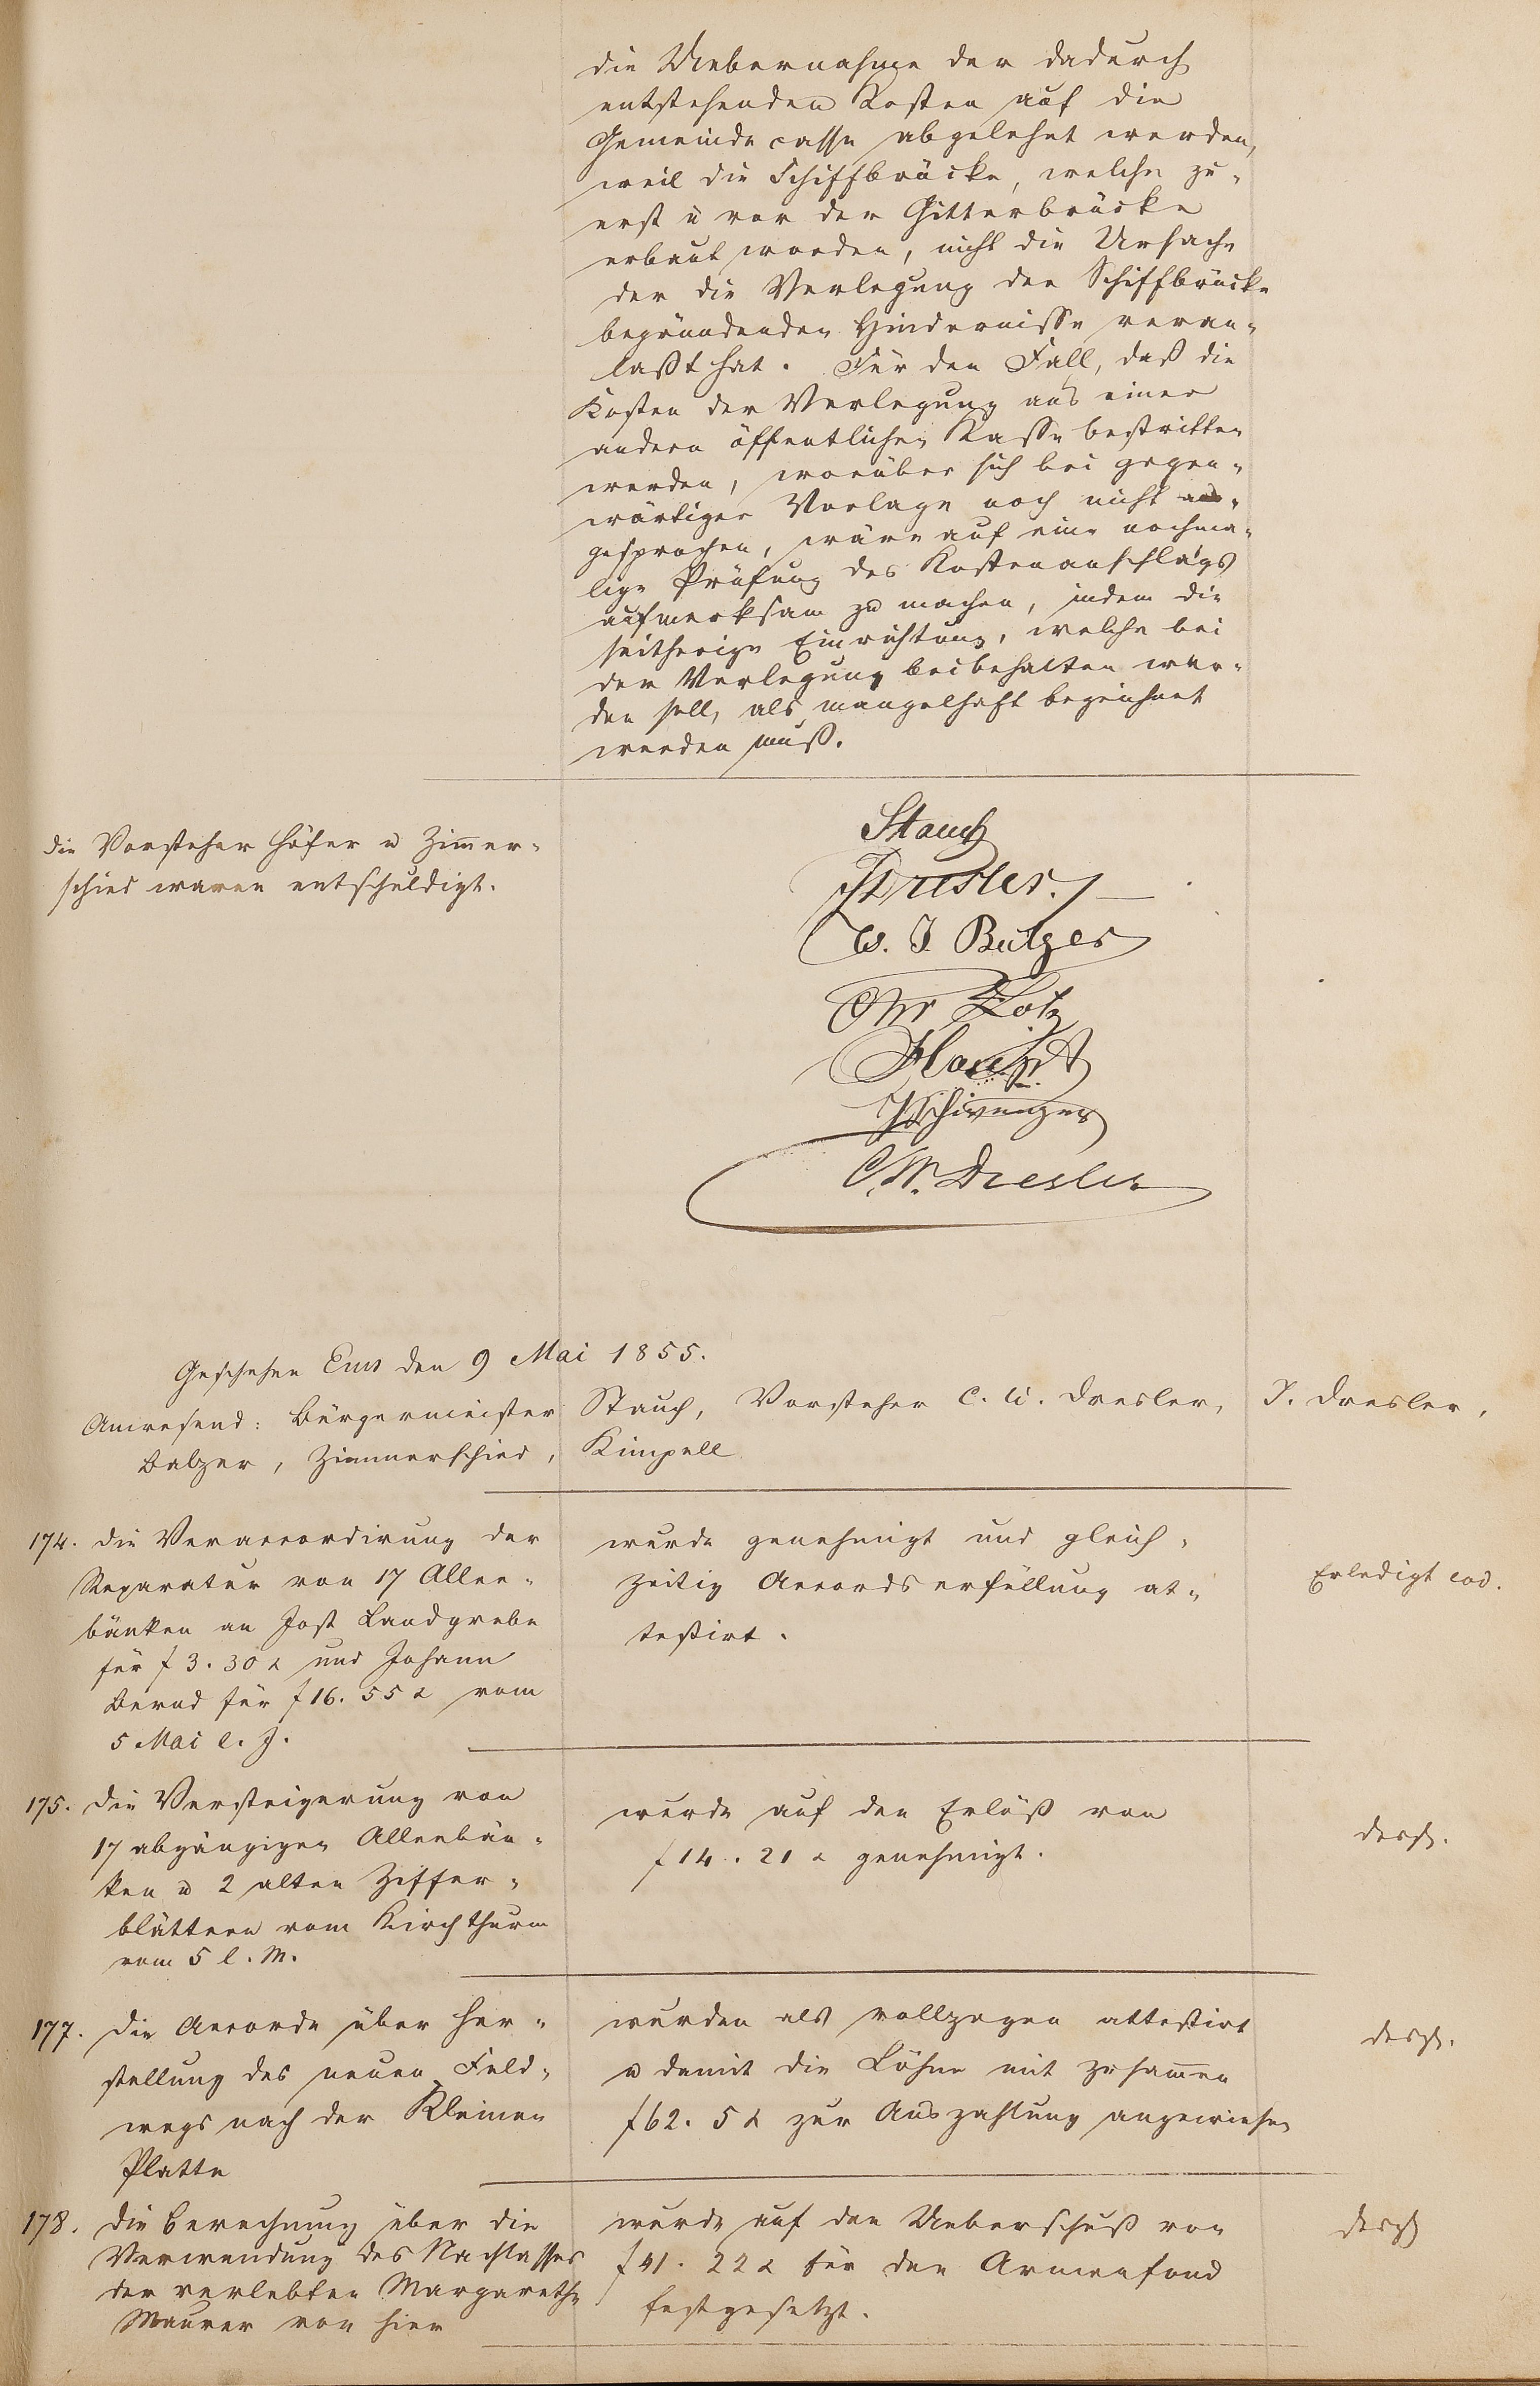 die Uebernahme der dadurch
entstehenden Kosten auf die
Gemeindecasse abgelehnt werden,
weil die Schiffbrücke, welche zu-
erst u vor der Gitterbrücke
erbaut worden, nicht die Ursache
der die Verlegung der Schiffbrücke
begründenden Hindernisse veran-
laßt hat. Für den Fall, daß die
Kosten der Verlegung aus einer
andern öffentlichen Kasse bestritten
werden, worüber sich bei gegen-
wärtiger Vorlage noch nicht aus-
gesprochen, wäre auf eine nochma-
lige Prüfung des Kostenanschlags
aufmerksam zu machen, indem die
seitherige Einrichtung, welche bei
der Verlegung beibehalten wer-
den soll, als mangelhaft bezeichnet
werden muß.
die Vorsteher Höfer u Zimmer-
schied waren entschuldigt.
Stauch
JDresler.
W. J. Balzer
Chr Lotz
Haupt
C.W. Dresler
Geschehen Ems den 9 Mai 1855.
Anwesend: Bürgermeister Stauch, Vorsteher C. W. Dresler, J. Dresler,
Balzer, Zimmerschied, Kimpell
174. die Veraccordirung der
Reparatur von 17 Allee-
bänken an Jost Landgrebe
für f 3. 30 x und Johann
Bernd für f 16. 55 x vom
5 Mai l. J.
wurde genehmigt und gleich-
zeitig Accordserfüllung at-
testirt.
Erledigt eod.
175. die Versteigerung von
17 abgängigen Alleebän-
ken u 2 alten Ziffer-
blättern vom Kirchthurm
vom 5 l. M.
wurde auf den Erlöß von
f 14. 21 x genehmigt.
desgl.
177. die Accorde über Her-
stellung des neuen Feld-
wegs nach der Kleinen
Platte
wurden als vollzogen attestirt
u damit die Löhne mit zusammen
f 62. 5 x zur Auszahlung angewiesen
desgl.
178. die Berechnung über die
Verwendung des Nachlasses
der verlebten Margarethe
Maurer von hier
wurde auf den Ueberschuß von
f 41. 22 x für den Armenfond
festgesetzt.
desgl